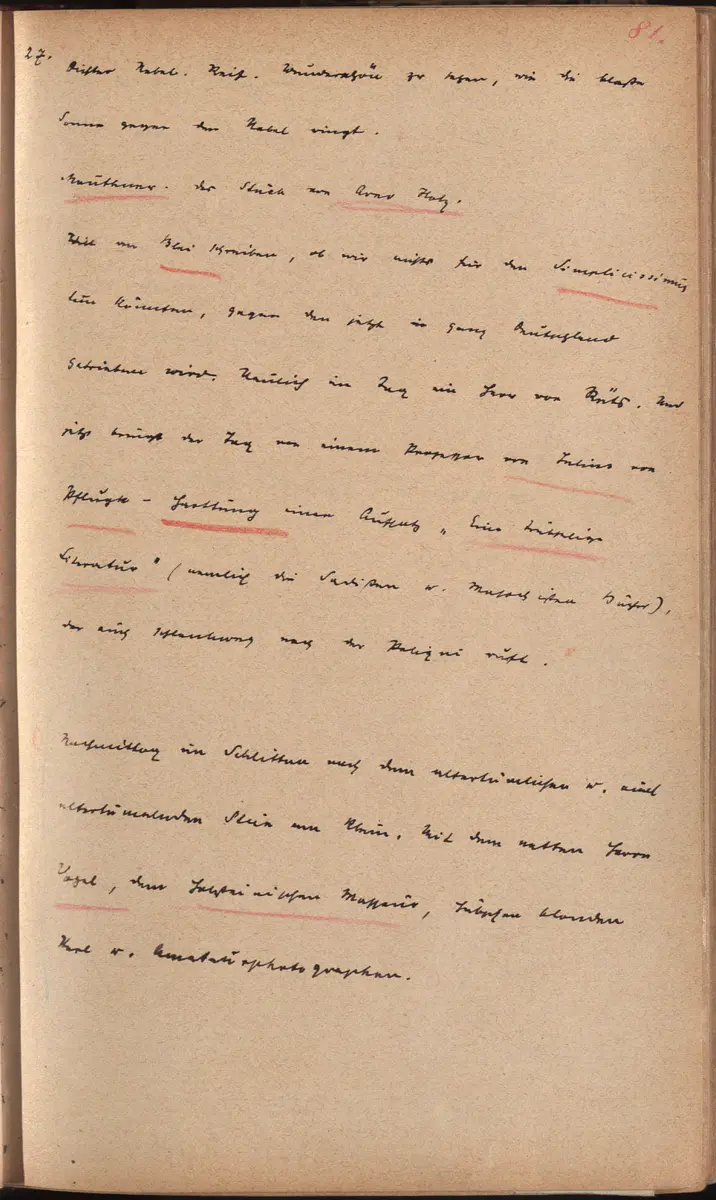 81.
27. Dichter Nebel. Reif. Wunderschön zu sehen, wie die blasse
Sonne gegen den Nebel ringt.
Mauthner. Das Stück von Arno Holz.
Will an Blei schreiben, ob wir nichts für den Simplicissimus
tun könnten, gegen den jetzt in ganz Deutschland
getrieben wird. Neulich im Tag ein Herr von . Und
jetzt bringt der Tag von einem Professor von Julius von
Pflugk-Harttung einen Aufsatz „Eine
Literatur" (nemlich die Sadisten u. Masochisten Bücher),
der auch nach der Polizei ruft.
Nachmittag im Schlitten nach dem altertümlichen u. auch
altertümelnden Stein am Rhein. Mit dem netten Herrn
Vogel, dem holsteinischen Masseur, hübschen blonden
Kerl u. Amateurphotographen.